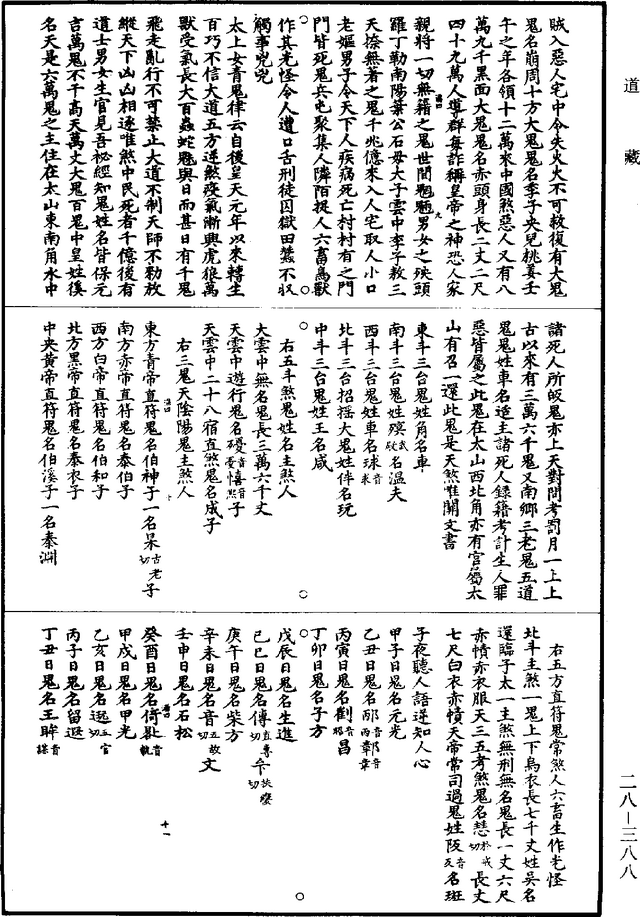 道藏
賊入惡人宅中令失火火不可救復有大鬼
鬼名崩周十方大鬼鬼名李子央兒姚姜壬
午之年各領十二萬來中國煞惡人又有八
萬九千黑面大鬼鬼名赤頭身長二丈二尺
四十九萬人專群每詐稱皇帝之神恐人家
親將一切無籍之鬼世間魍魎男女之殃頭
羅丁勒南陽葉公石母大子雲中李子敖三
天捺無者之鬼千兆億來入人宅取人小口
老嫗男子令天下人疾病死亡村村有之門
門皆死鬼兵屯聚集人隣陌捉人六畜鳥獸
作其光怪令人遭口舌刑徒囚獄田蠶不収
觸事兇兇
太上女青鬼律云自後皇天元年以來轉生
百巧不信大道五方逆煞疫氣漸興虎狼萬
獸受氣長大百蟲蛇魅與日而甚日有千鬼
飛走亂行不可禁止大道不制天師不勒放
縱天下凶凶相逐唯煞中民死者千億後有
道士男女生官見吾祕經知鬼姓名皆保元
吉萬鬼不干高天萬丈大鬼百鬼中皇姓係
名天是六萬鬼之主住在太山東南角水中
諸死人所皈鬼亦上天對問考罰月一上上
古以來有三萬六千鬼又南鄉三老鬼五道
鬼鬼姓車名延主諸死人録籍考計生人罪
惡皆屬之此鬼在太山西北角亦有官屬太
山有召一還此鬼是天煞唯開文書
東斗三台鬼姓角名車
南斗三台鬼姓名溫夫
西斗三台鬼姓車名球音求
北斗三台招搖大鬼姓伴名玩
中斗三台鬼姓王名咸
右五斗煞鬼姓名主煞人
大雲中無名鬼長三萬六千丈
天雲中遊行鬼名音憂憘音熙子
天雲中二十八宿直煞鬼名成子
右三鬼天陰陽鬼主煞人
東方青帝直符鬼名伯神子一名杲古老切子
南方赤帝直符鬼名泰伯子
西方白帝直符鬼名伯和子
北方黑帝直符鬼名泰衣子
中央黃帝直符鬼名伯溪子一名秦淵
右五方直符鬼常煞人六畜生作光怪
北斗主煞一鬼上下烏衣長七千丈姓吳名
還臨子太一主煞無刑無名鬼長一丈六尺
赤幘赤衣服天三五考煞鬼名慧於戒切長丈
七尺白衣赤幘天帝常司過鬼姓阪音反名班
子夜聽人語逆知人心
甲子日鬼名元光
乙丑日鬼名邴音丙鄣音章
丙寅日鬼名音昭昌
丁卯日鬼名子方
戊辰日鬼名生進
己巳日鬼名傳直專切
庚午日鬼名柴方
辛未日鬼名音五故切文
壬申日鬼名石松
癸酉日鬼名倚音軌
甲戌日鬼名甲光
乙亥日鬼名五官切
丙子日鬼名留遐
丁丑日鬼名王眸音謀
二八-三八八